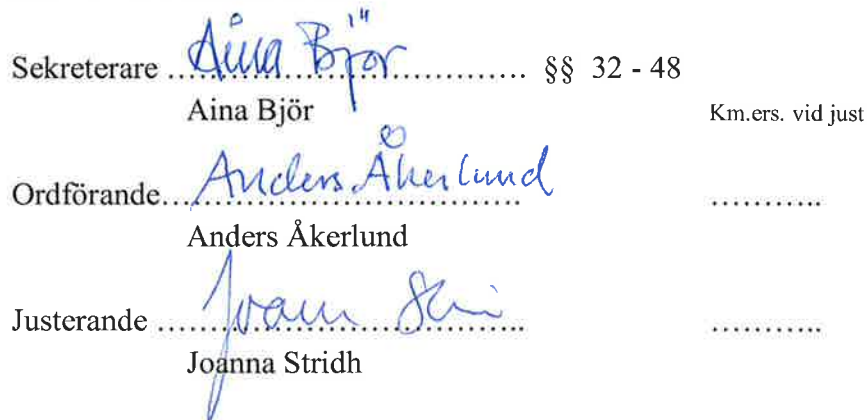 Sekreterare Aina Björ §§ 32 - 48
Aina Björ
Km.ers. vid just
Ordförande Anders Åkerlund ...........
Anders Åkerlund
Justerande ...........
Joanna Stridh